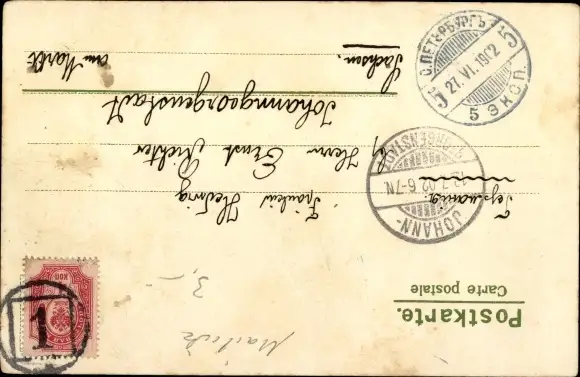 Postkarte.
Carte postale
Fräulein Hedwig
b/ Herrn Ernst Richter
Johanngeorgenstadt
Sachsen.
am Markt
Германия.
С.ПЕТЕРБУРГЪ
27.VI.1902
5 ЭКСП. 5
JOHANN-
GEORGENSTADT
12.7.02.6-7N.
КОП
1
3,-